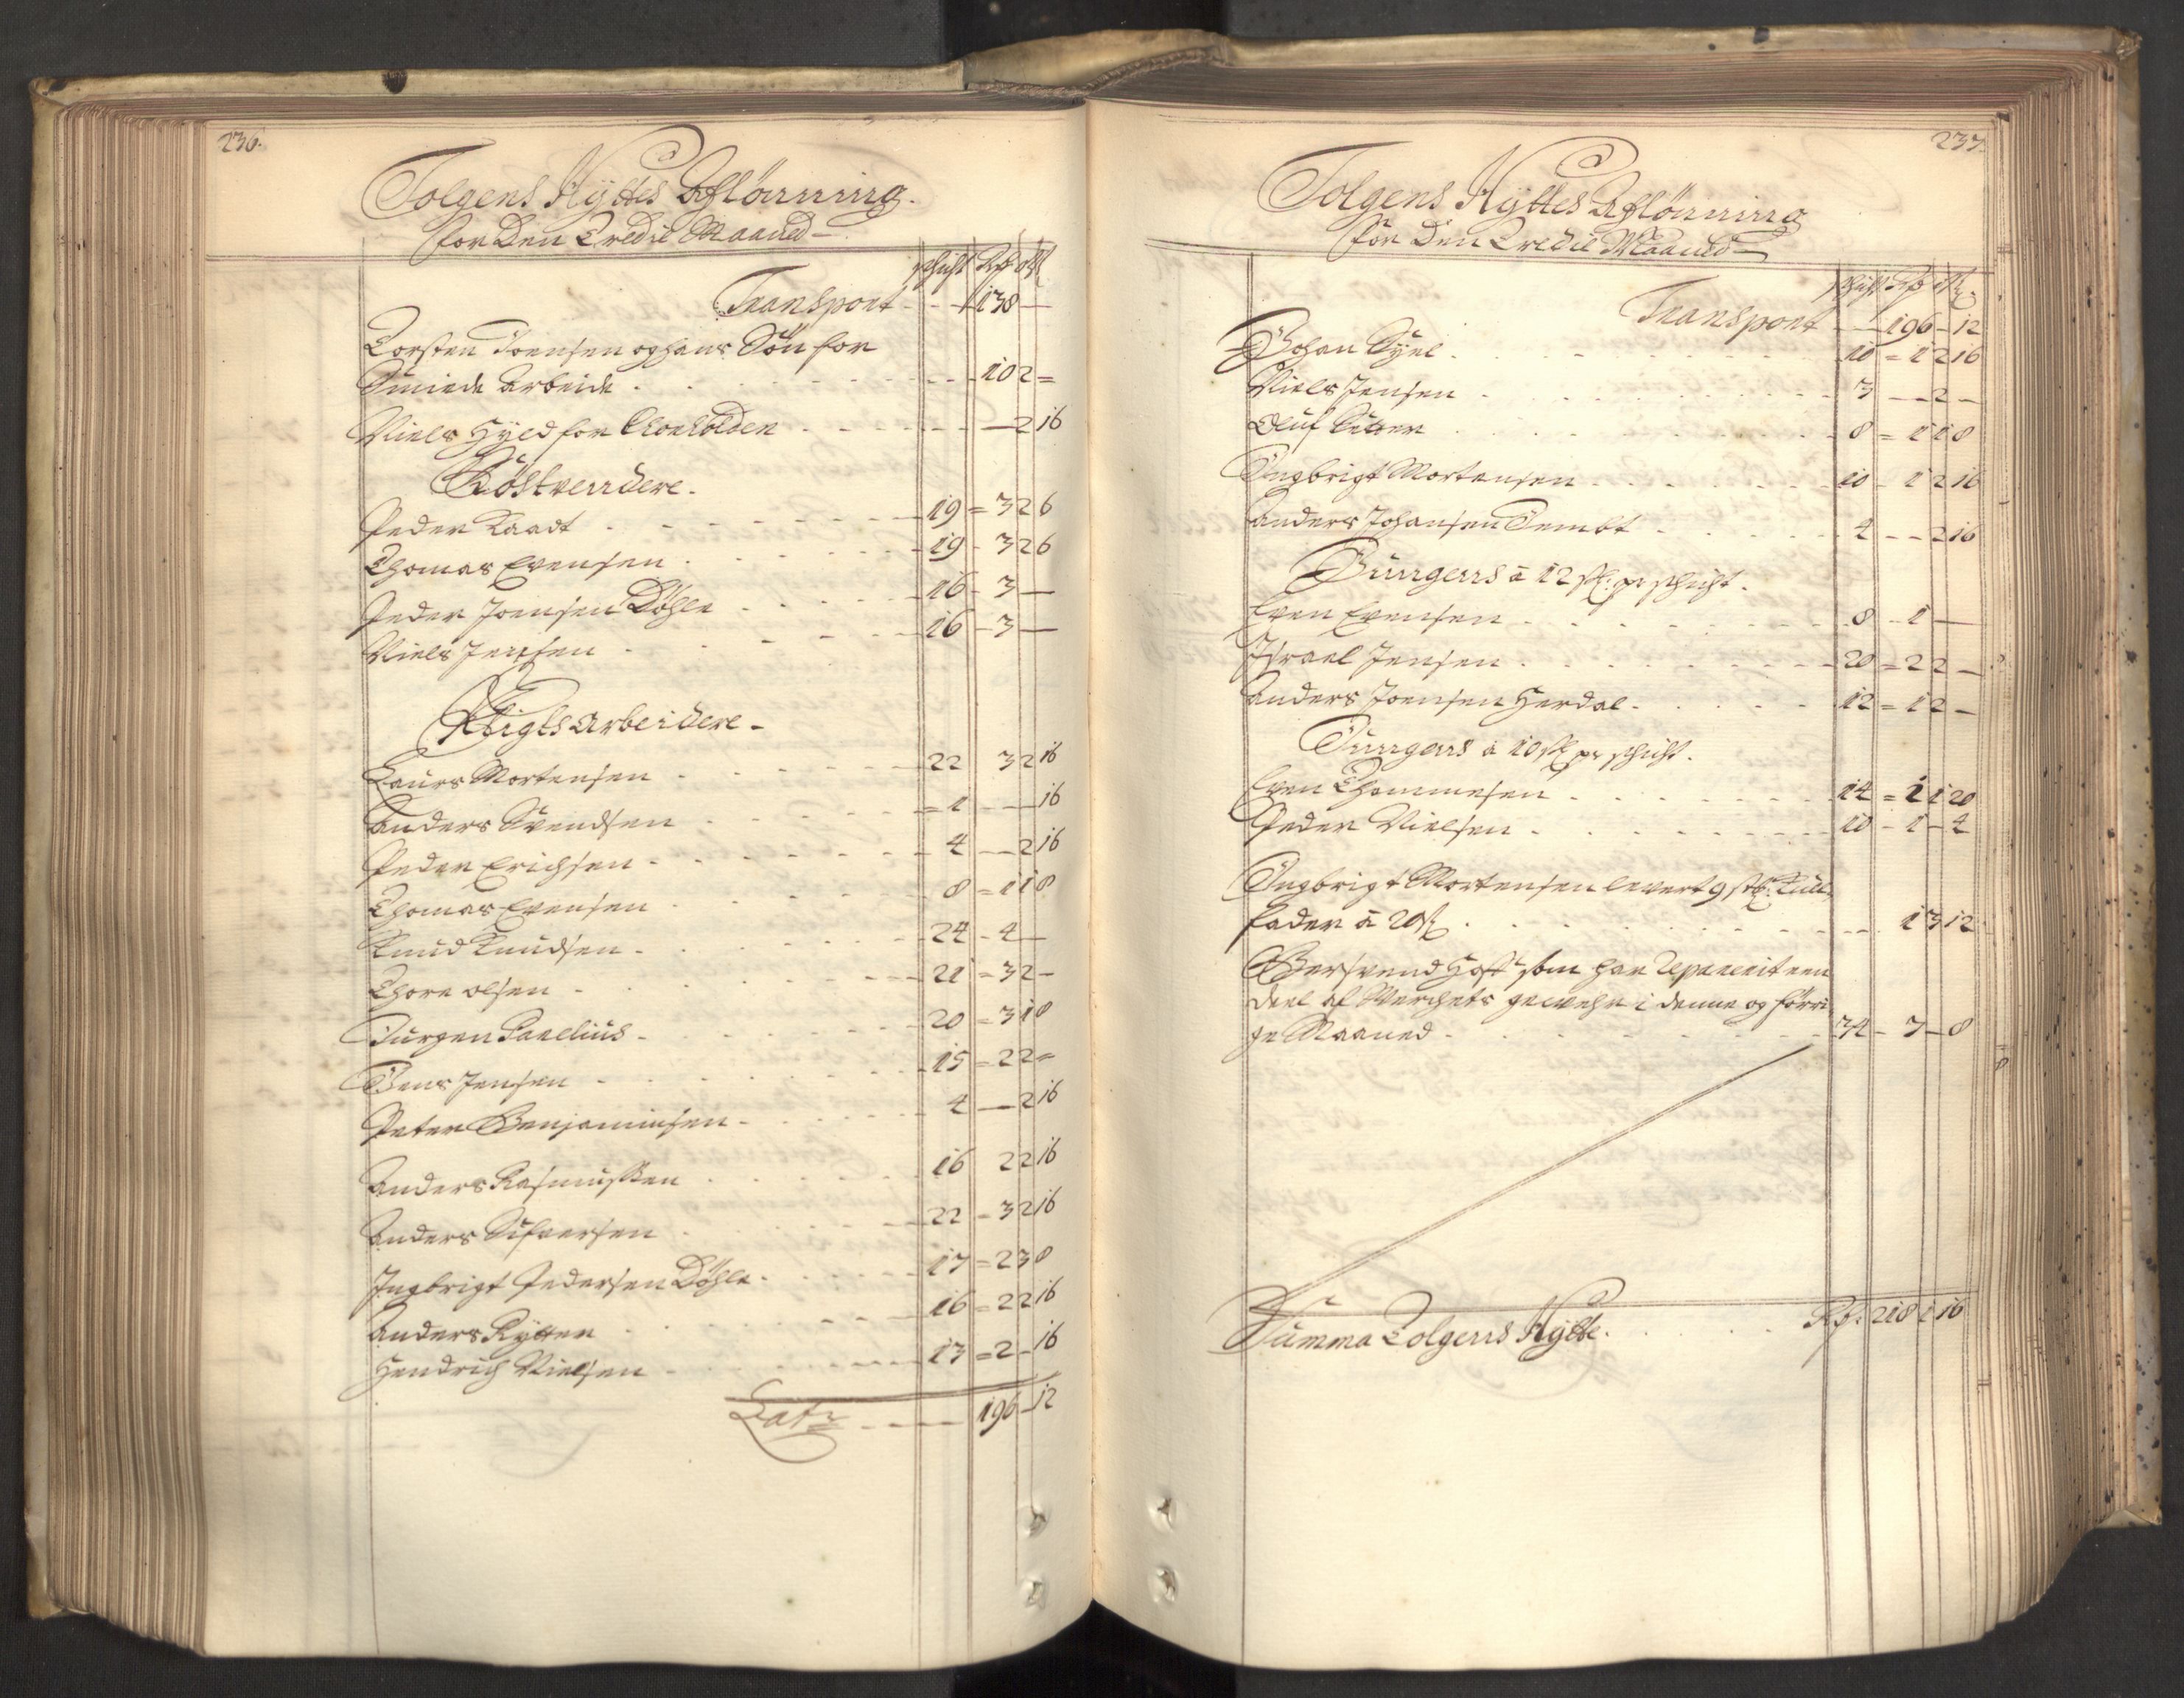 236.
Tolgens Hÿttes Aflönning.
for Den Tredie Maaned
schicht Rd ß
Transport - - - 138 -
Torsten Joensen og hans Sön for
Smiede Arbeide . - - - 10 2 =
Niels Hÿld for - - - 2 16
Röstvendere.
Peder Kaadt . - - 19 = 3 2 6
Thomas Evensen . - - 19 - 3 2 6
Peder Joensen Döhle - - 16 - 3 -
Niels Jensen - - 16 - 3 -
Arbeidere -
Laurs Mortensen - - 22 3 2 16
Anders Svendsen - - = 1 - - 16
Peder Erichsen - - 4 - 2 16
Thomas Evensen - - 8 = 1 1 8
Knud Knudsen - - 24 - 4 -
Thore Olsen - - 21 = 3 2 -
Jürgen Paellius - - 20 = 3 1 8
Jens Jensen - - 15 = 2 2 =
Peter Benjaminsen - - 4 - 2 16
Anders Rasmussen - - 16 2 2 16
Anders Sifversen - - 22 - 3 2 16
Ingbrigt Pedersen Döhle - - 17 = 2 3 8
Anders Rÿtter - - 16 = 2 2 16
Hendrich Nielsen - - 13 = 2 - 16
Lats - - - 196 - 12
237.
Tolgens Hÿttes Aflönning
for Den Tredie Maaned
schicht Rd ß
Transport - - 196 - 12
Johan - - 10 = 1 2 16
Niels Jensen - - 3 - - 2 -
Oluf - - 8 = 1 1 8
Ingbrigt Mortensen - - 10 - 1 2 16
Anders Johansen Tembt - - 4 - - 2 16
Jungens à 12 ß: pr schicht.
Even Evensen - - 8 - 1 -
Israel Jensen - - 20 = 2 2 -
Anders Joensen Herdal - - 12 = 1 2 -
Jungens à 10 ß pr schicht.
Even Thommesen - - 14 = 1 1 20
Peder Nielsen - - 10 - 1 - 4
Ingbrigt Mortensen levert 9 stk:
fader à 20 ß - - 1 3 12
som har Reparerit een
deel af Werchets gewehr i denne og förri
ge Maaned - - 34 - 7 - 8
Summa Tolgens Hÿtte. - - Rd. 218 1 16